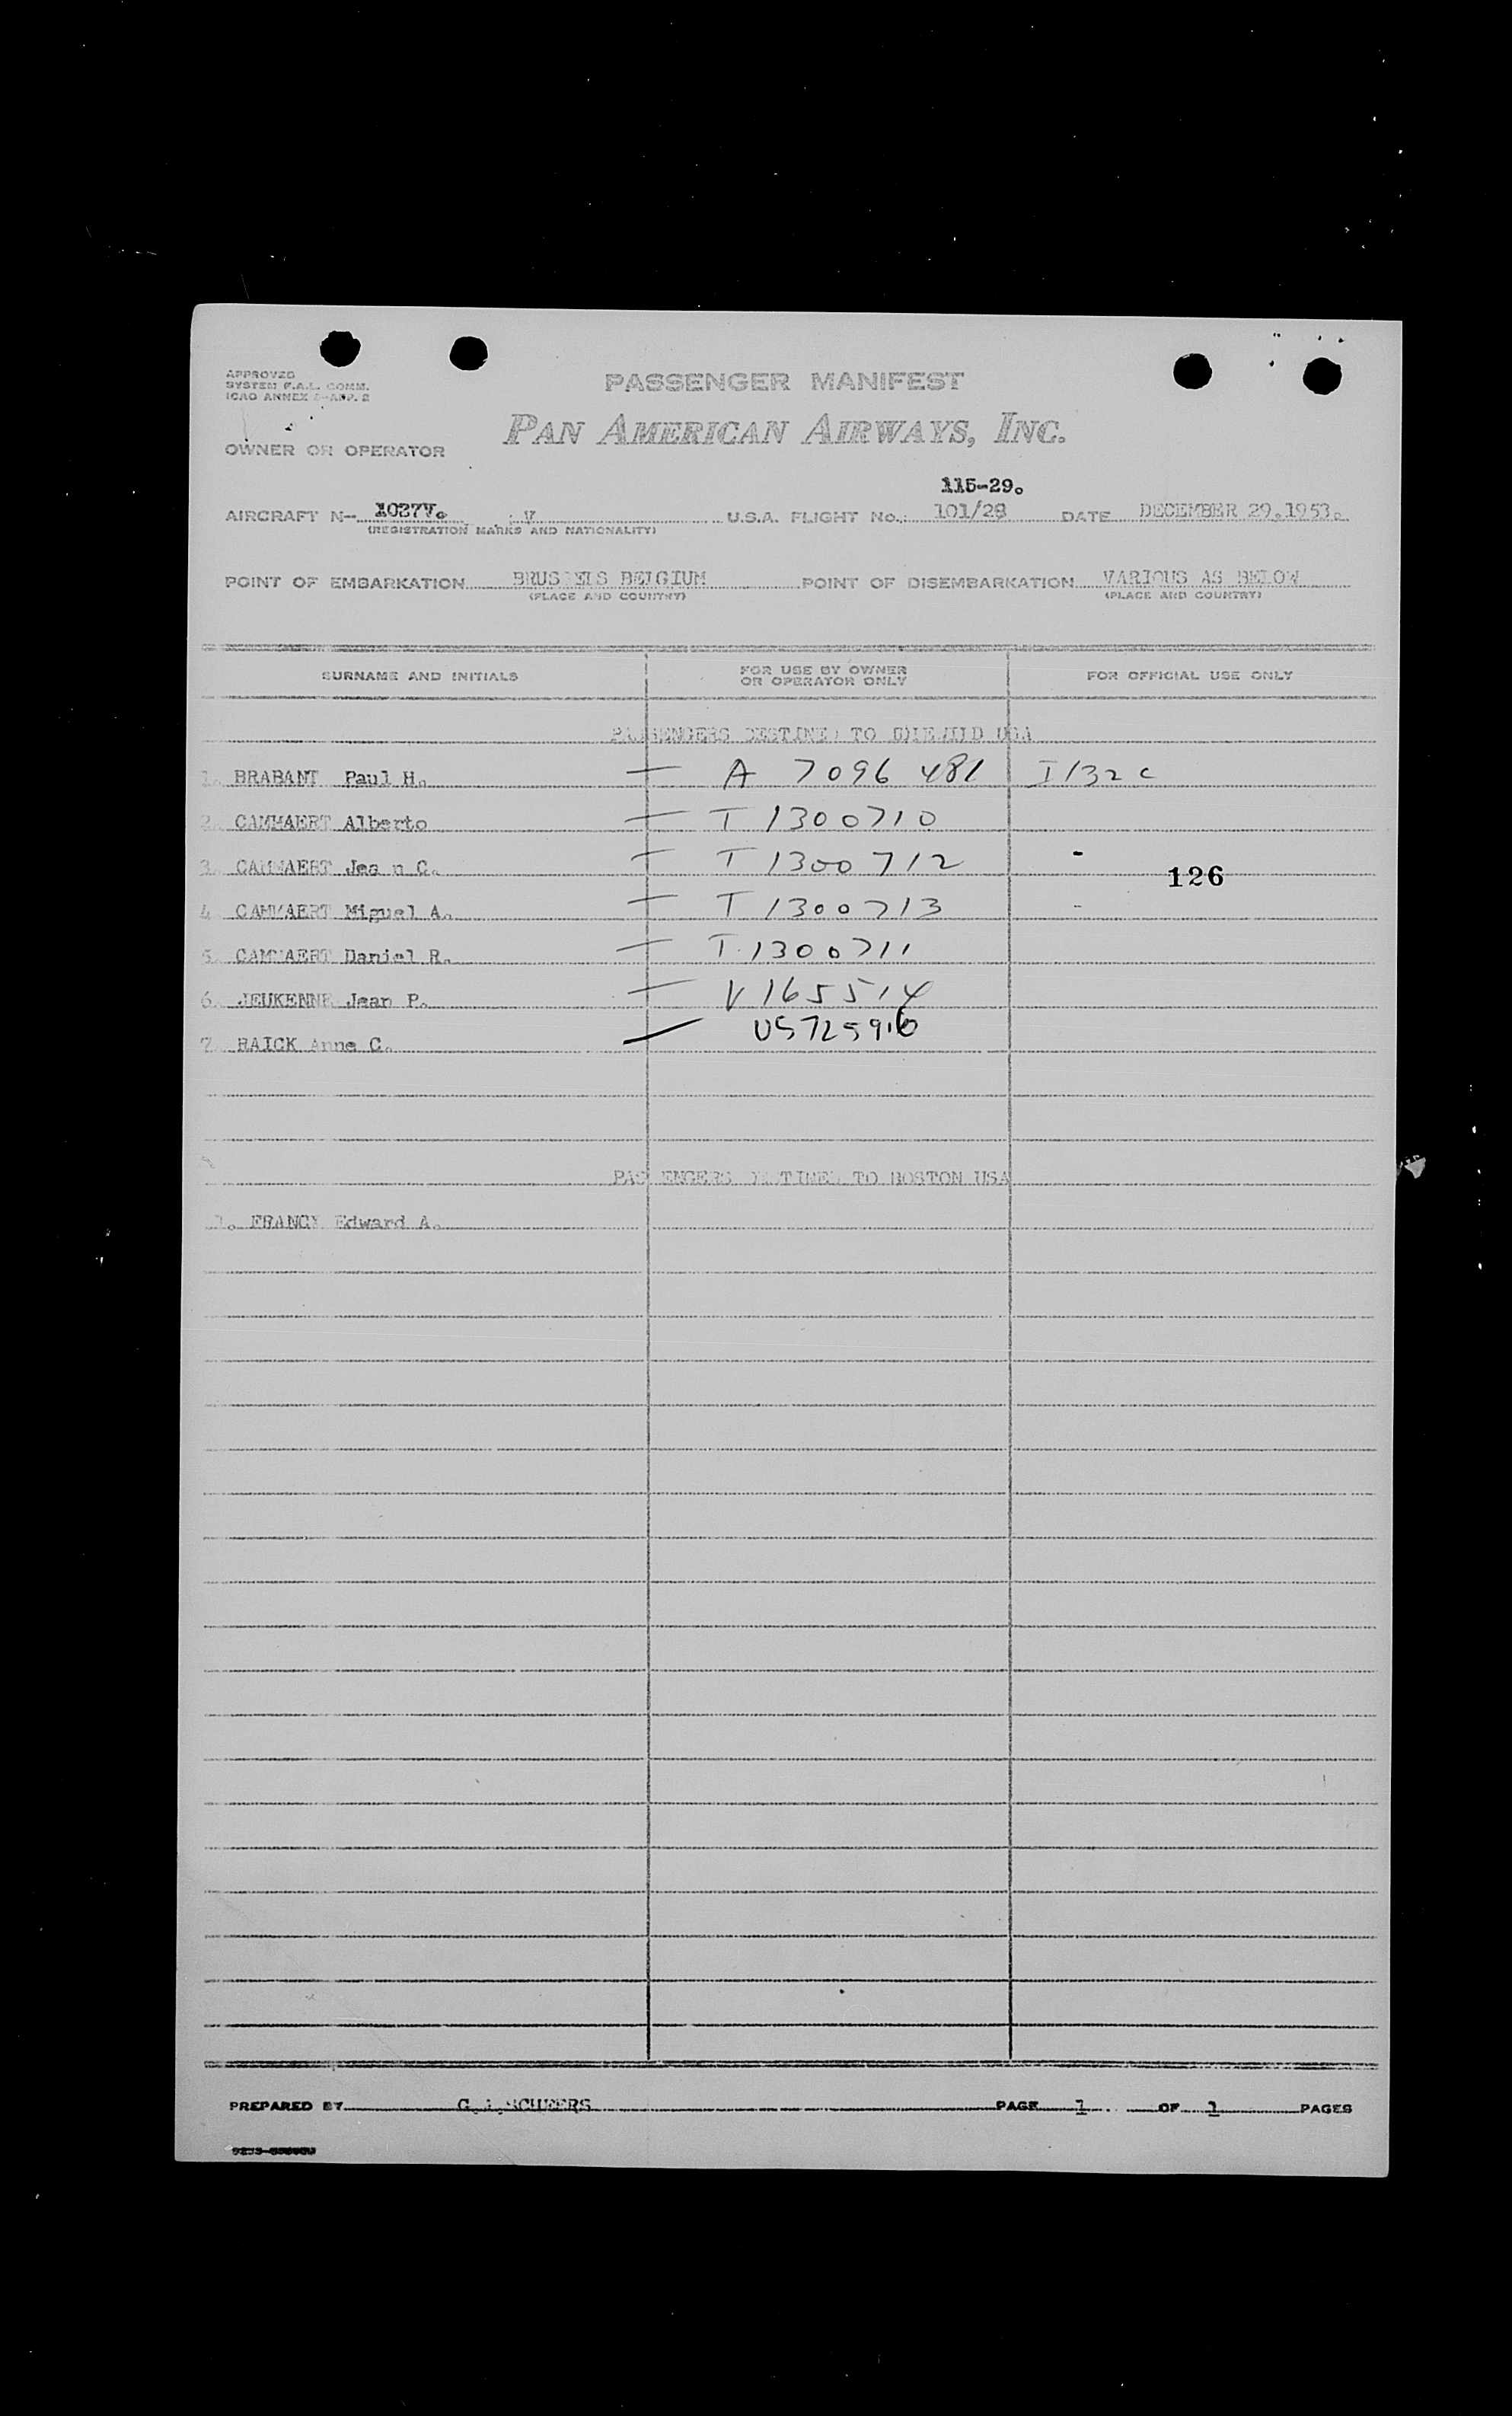 APPROVED
SYSTEM F.A.L. COMM.
ICAO ANNEX 9-APP. 2
PASSENGER MANIFEST
PAN AMERICAN AIRWAYS, INC.
OWNER OR OPERATOR
115-29.
AIRCRAFT N- 1027V. U.S.A. FLIGHT No.: 101/28 DATE DECEMBER 29.1953.
(REGISTRATION MARKS AND NATIONALITY)
POINT OF EMBARKATION BRUSSELS BELGIUM POINT OF DISEMBARKATION VARIOUS AS BELOW
(PLACE AND COUNTRY) (PLACE AND COUNTRY)
SURNAME AND INITIALS FOR USE BY OWNER OR OPERATOR ONLY FOR OFFICIAL USE ONLY
PASSENGERS DESTINED TO IDLEWILD USA
1. BRABANT Paul H. — A 7096 481 I 132 c
2. CAMMAERT Alberto — T 1300710
3. CAMMAERT Jea n C. — T 1300712 -
126
4. CAMMAERT Miguel A. — T 1300713 -
5. CAMMAERT Daniel R. — T.1300711
6. JEUKENNE Jean P. — V 165514
7. RAICK Anne C. — US725916
PASSENGERS DESTINED TO BOSTON USA
1. FRANCY Edward A.
PREPARED BY PAGE 1 OF 1 PAGES